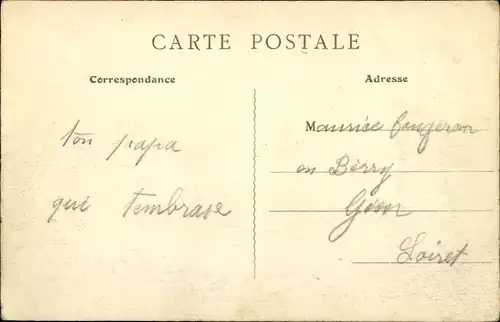 CARTE POSTALE
Correspondance
Adresse
ton papa
qui tembrase
Maurice Fougeron
en Berry
Gien
Loiret